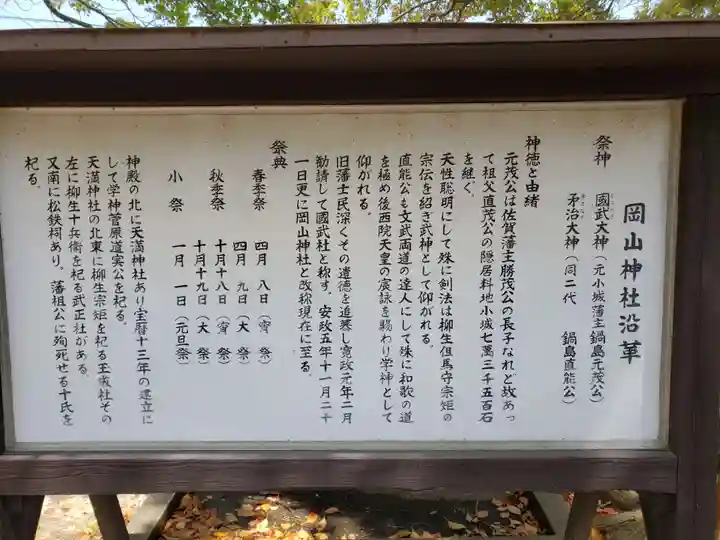 岡山神社沿革
祭神
國武大神（元小城藩主鍋島元茂公）
矛治大神（同二代　鍋島直能公）
神徳と由緒
元茂公は佐賀藩主勝茂公の長子なれど故あっ
て祖父直茂公の隠居料地小城七萬三千五百石
を継ぐ。
天性聡明にして殊に剣法は柳生但馬守宗矩の
宗伝を紹ぎ武神として仰がれる。
直能公も文武両道の達人にして殊に和歌の道
を極め後西院天皇の宸詠を賜わり学神として
仰がれる。
旧藩士民深くその遺徳を追慕し寛政元年二月
勧請して國武社と称す。安政五年十一月二十
一日更に岡山神社と改称現在に至る。
祭典
春季祭　四月　八日（宵　祭）
四月　九日（大　祭）
秋季祭　十月十八日（宵　祭）
十月十九日（大　祭）
小　祭　一月　一日（元旦祭）
神殿の北に天満神社あり宝暦十三年の建立に
して学神菅原道実公を祀る。
天満神社の北東に柳生宗矩を祀る玉成社その
左に柳生十兵衛を祀る武正社がある。
又南に松鉄祠あり。藩祖公に殉死せる十氏を
祀る。